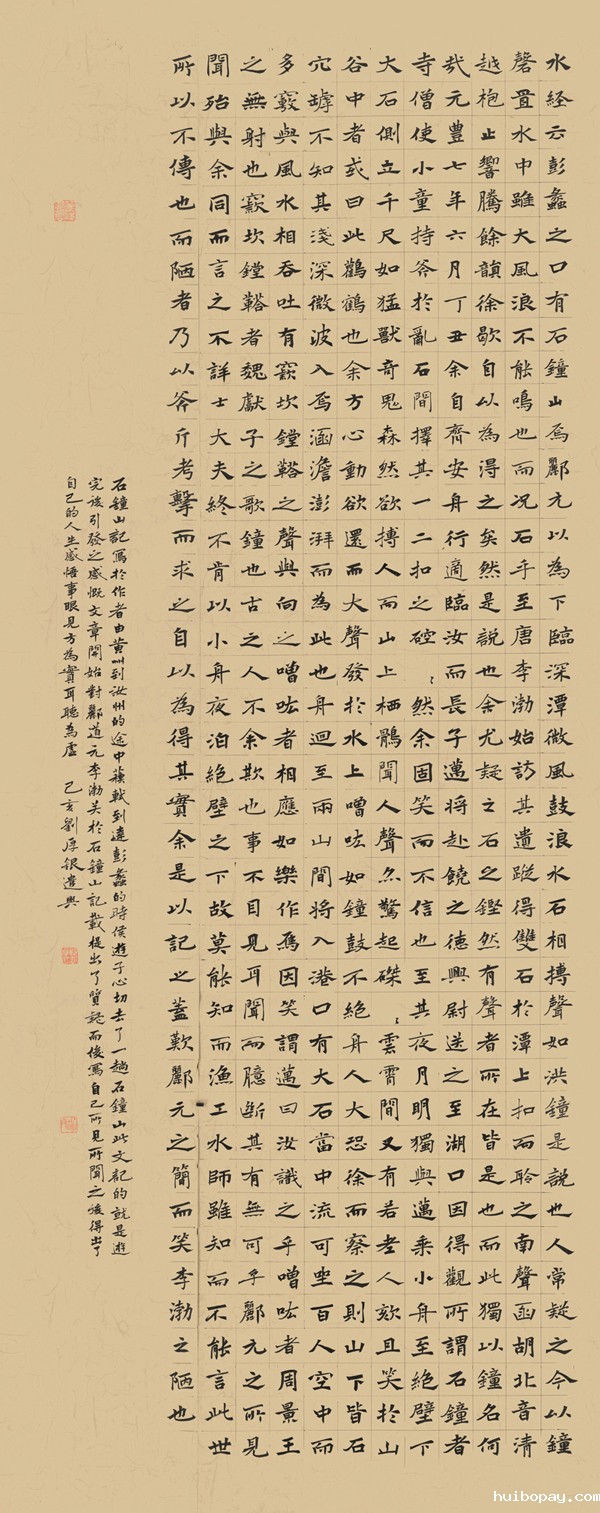 水経云彭蠡之口有石鐘山焉酈元以為下臨深潭微風鼓浪水石相搏聲如洪鐘是說也人常疑之今以鐘
磬置水中雖大風浪不能鳴也而況石乎至唐李渤始訪其遺蹤得雙石於潭上扣而聆之南聲函胡北音清
越枹止響騰餘韻徐歇自以為得之矣然是說也余尤疑之石之鏗然有聲者所在皆是也而此獨以鐘名何
哉元豐七年六月丁丑余自齊安舟行適臨汝而長子邁将赴饒之德興尉送之至湖口因得觀所謂石鐘者
寺僧使小童持斧於亂石間擇其一二扣之硿〻然余固笑而不信也至其夜月明獨與邁乘小舟至絕壁下
大石側立千尺如猛獸奇鬼森然欲搏人而山上栖鶻聞人聲亦驚起磔〻雲霄間又有若老人欬且笑於山
谷中者或曰此鸛鶴也余方心動欲還而大聲發於水上噌吰如鐘鼓不絕舟人大恐徐而察之則山下皆石
穴罅不知其淺深微波入焉涵澹澎湃而為此也舟迴至兩山間将入港口有大石當中流可坐百人空中而
多竅與風水相吞吐有窾坎鏜鞳之聲與向之噌吰者相應如樂作焉因笑謂邁曰汝識之乎噌吰者周景王
之無射也窾坎鏜鞳者魏獻子之歌鐘也古之人不余欺也事不目見耳聞而臆斷其有無可乎酈元之所見
聞殆與余同而言之不詳士大夫終不肯以小舟夜泊絕壁之下故莫能知而漁工水師雖知而不能言此世
所以不傳也而陋者乃以斧斤考擊而求之自以為得其實余是以記之蓋歎酈元之簡而笑李渤之陋也
石鐘山記寫於作者由黄州到汝州的途中蘇軾到達彭蠡的時侯遊子心切去了一趟石鐘山此文記的就是遊
完後引發之感慨文章開始對酈道元李渤关於石鐘山記載提出了質疑而後寫自己所見所聞之後得出了
自己的人生感悟事眼見方為實耳聽為虛 己亥劉厚銀遣興
huibopay.com